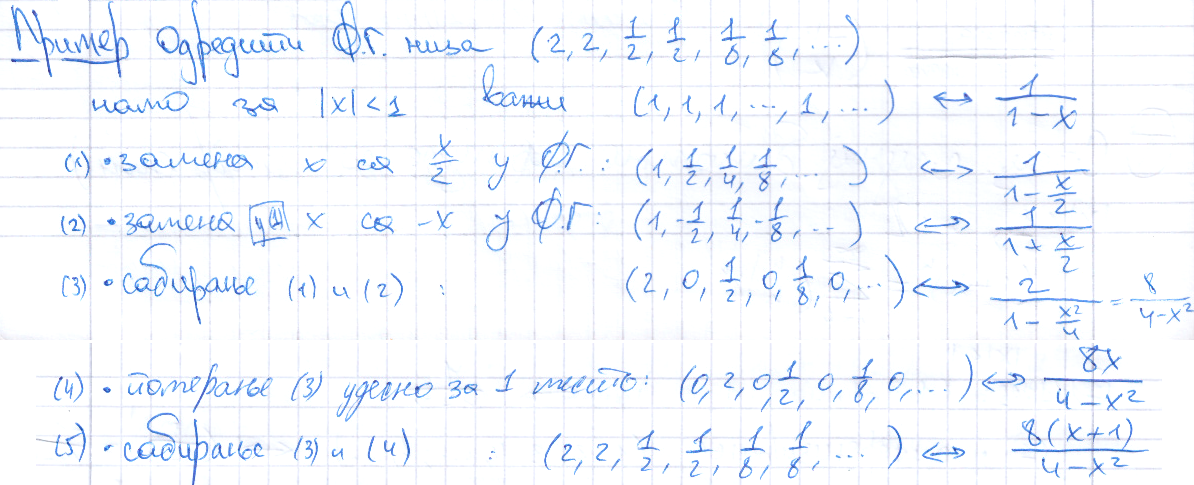 Пример Одредити Ф.Г. низа (2, 2, 1/2, 1/2, 1/8, 1/8, ...)
знамо за |x| < 1 важи (1, 1, 1, ..., 1, ...) ↔ 1/(1-x)
(1) • замена x са x/2 у Ф.Г.: (1, 1/2, 1/4, 1/8, ...) ↔ 1/(1 - x/2)
(2) • замена x са -x у Ф.Г: (1, -1/2, 1/4, -1/8, ...) ↔ 1/(1 + x/2)
(3) • сабирање (1) и (2) : (2, 0, 1/2, 0, 1/8, 0, ...) ↔ 2/(1 - x²/4) = 8/(4-x²)
(4) • померање (3) удесно за 1 место: (0, 2, 0, 1/2, 0, 1/8, 0, ...) ↔ 8x/(4-x²)
(5) • сабирање (3) и (4) : (2, 2, 1/2, 1/2, 1/8, 1/8, ...) ↔ 8(x+1)/(4-x²)